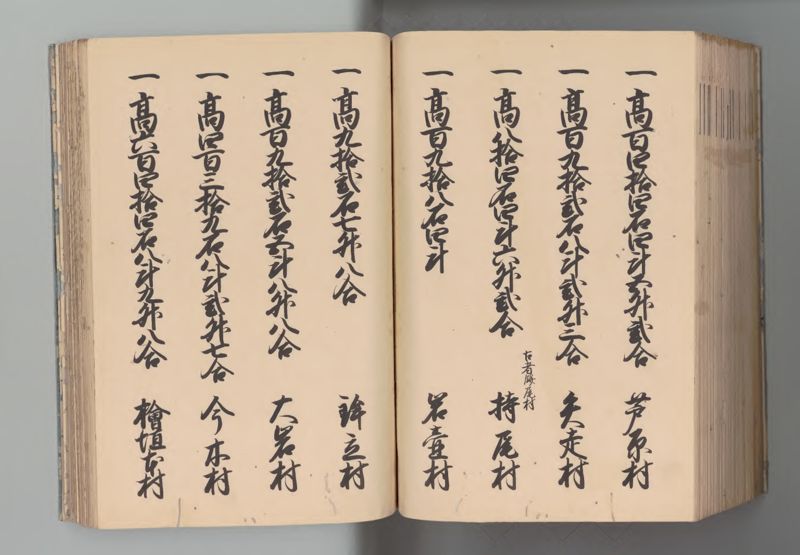 一高百四拾四石四斗五升弐合 芦原村
一高百九拾弐石八斗弐升三合 矢走村
古者勝尾村
一高八拾四石四斗六升弐合 持尾村
一高百九拾八石四斗 岩壷村
一高九拾弐石七升八合 鉾立村
一高百九拾弐石五斗八升八合 大岩村
一高四百三拾九石八斗弐升七合 今木村
一高六百四拾四石八斗九升八合 檜垣本村